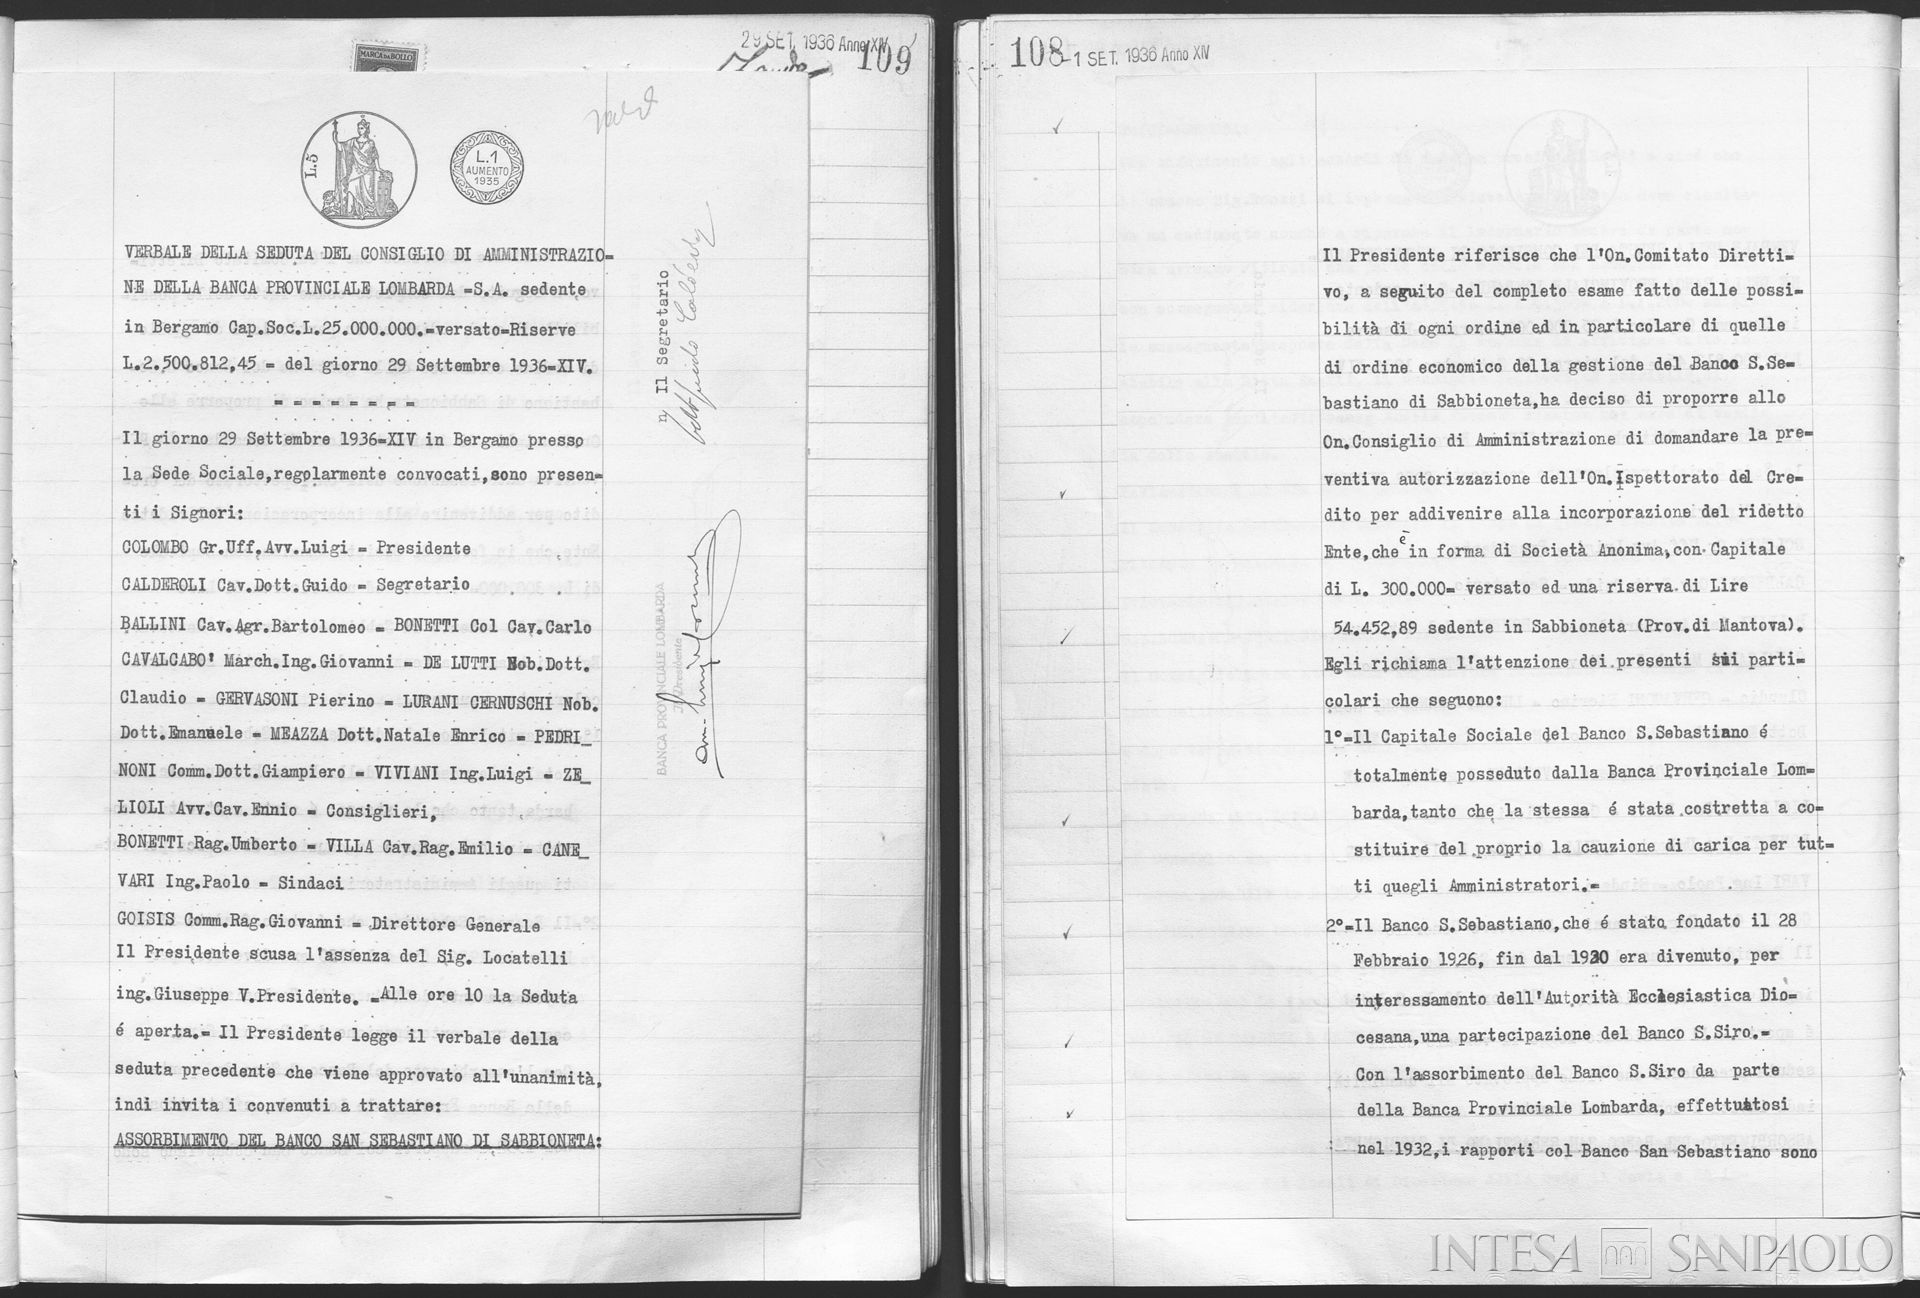 MARCA DA BOLLO
29 SET. 1936 Anno XIV
109
L.5
L.1
AUMENTO
1935
VERBALE DELLA SEDUTA DEL CONSIGLIO DI AMMINISTRAZIO=
NE DELLA BANCA PROVINCIALE LOMBARDA =S.A. sedente
in Bergamo Cap.Soc.L.25.000.000.=versato=Riserve
L.2.500.812,45 = del giorno 29 Settembre 1936=XIV.
= = = = = = = =
Il giorno 29 Settembre 1936=XIV in Bergamo presso
la Sede Sociale,regolarmente convocati,sono presen=
ti i Signori:
COLOMBO Gr.Uff.Avv.Luigi = Presidente
CALDEROLI Cav.Dott.Guido = Segretario
BALLINI Cav.Agr.Bartolomeo = BONETTI Col Cav.Carlo
CAVALCABO' March.Ing.Giovanni = DE LUTTI Nob.Dott.
Claudio = GERVASONI Pierino = LURANI CERNUSCHI Nob.
Dott.Emanuele = MEAZZA Dott.Natale Enrico = PEDRI_
NONI Comm.Dott.Giampiero = VIVIANI Ing.Luigi = ZE_
LIOLI Avv.Cav.Ennio = Consiglieri,
BONETTI Rag.Umberto = VILLA Cav.Rag.Emilio = CANE_
VARI Ing.Paolo = Sindaci
GOISIS Comm.Rag.Giovanni = Direttore Generale
Il Presidente scusa l'assenza del Sig. Locatelli
ing.Giuseppe V.Presidente. =Alle ore 10 la Seduta
é aperta.= Il Presidente legge il verbale della
seduta precedente che viene approvato all'unanimità,
indi invita i convenuti a trattare:
ASSORBIMENTO DEL BANCO SAN SEBASTIANO DI SABBIONETA:
Il Segretario
BANCA PROVINCIALE LOMBARDA
Il Presidente
108
-1 SET. 1936 Anno XIV
Il Presidente riferisce che l'On.Comitato Diretti=
vo, a seguito del completo esame fatto delle possi=
bilità di ogni ordine ed in particolare di quelle
di ordine economico della gestione del Banco S.Se=
bastiano di Sabbioneta,ha deciso di proporre allo
On.Consiglio di Amministrazione di domandare la pre=
ventiva autorizzazione dell'On.Ispettorato del Cre=
dito per addivenire alla incorporazione del ridetto
Ente,che è in forma di Società Anonima,con Capitale
di L. 300.000= versato ed una riserva di Lire
54.452,89 sedente in Sabbioneta (Prov.di Mantova).
Egli richiama l'attenzione dei presenti sui parti=
colari che seguono:
1°=Il Capitale Sociale del Banco S.Sebastiano é
totalmente posseduto dalla Banca Provinciale Lom=
barda,tanto che la stessa é stata costretta a co=
stituire del proprio la cauzione di carica per tut=
ti quegli Amministratori.=
2°=Il Banco S.Sebastiano,che é stato fondato il 28
Febbraio 1926, fin dal 1930 era divenuto, per
interessamento dell'Autorità Ecclesiastica Dio=
cesana,una partecipazione del Banco S.Siro.=
Con l'assorbimento del Banco S.Siro da parte
della Banca Provinciale Lombarda, effettuatosi
nel 1932,i rapporti col Banco San Sebastiano sono
INTESA SANPAOLO